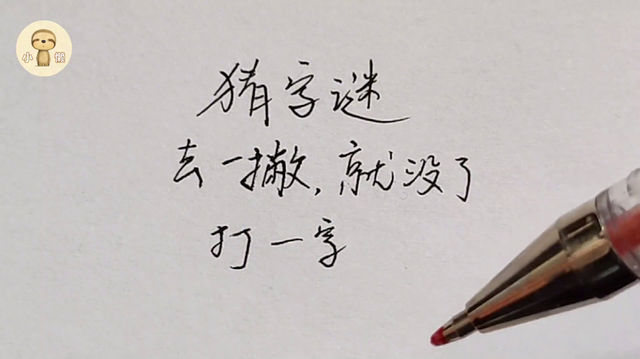 小懒
猜字谜
去一撇,就没了
打一字